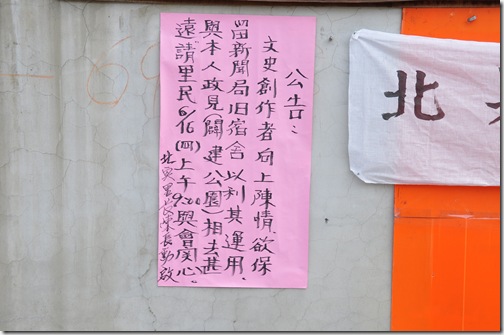 公告：
文史創作者向上陳情、欲保
留新聞局旧宿舍以利其運用、
與本人政見(闢建公園)相去甚
遠請里民6/16(四)上午9:00與會関心。
北興里長
長動啟
北